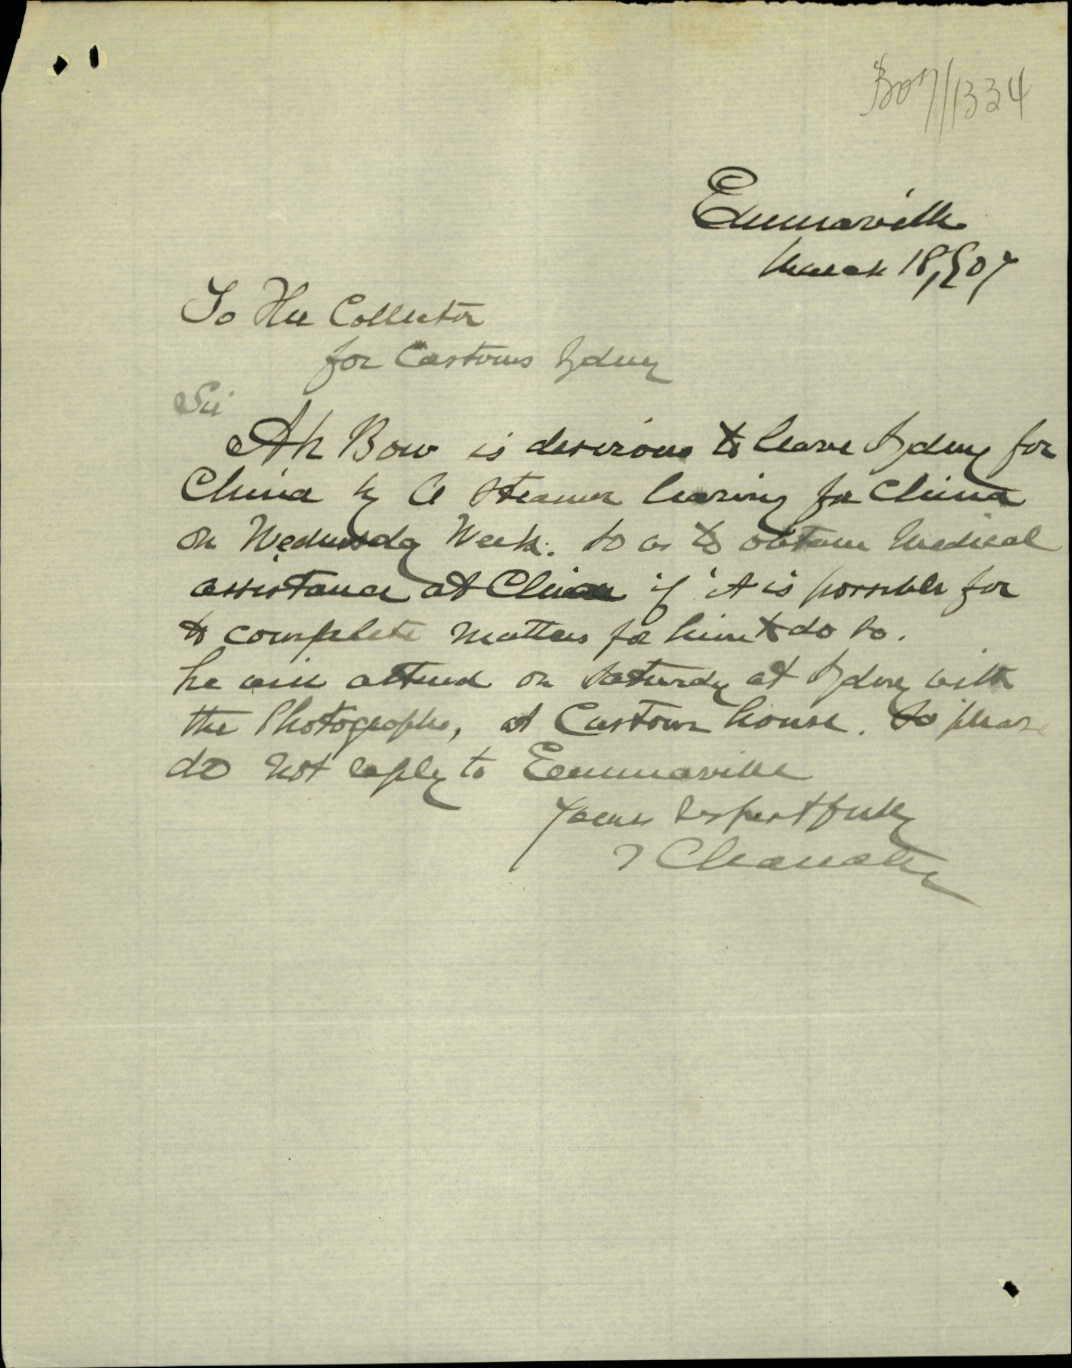 B07/1334
Emmaville
March 18, 907
To The Collector
for Customs Sydney
Sir
Ah Bow is desirous to leave Sydney for
China by a Steamer leaving for China
on Wednesday Week. so as to obtain medical
assistance at China if it is possible for
to complete matters for him to do so.
he will attend on Saturday at Sydney with
the Photographs, at Customs house. so please
do not reply to Emmaville
Yours respectfully